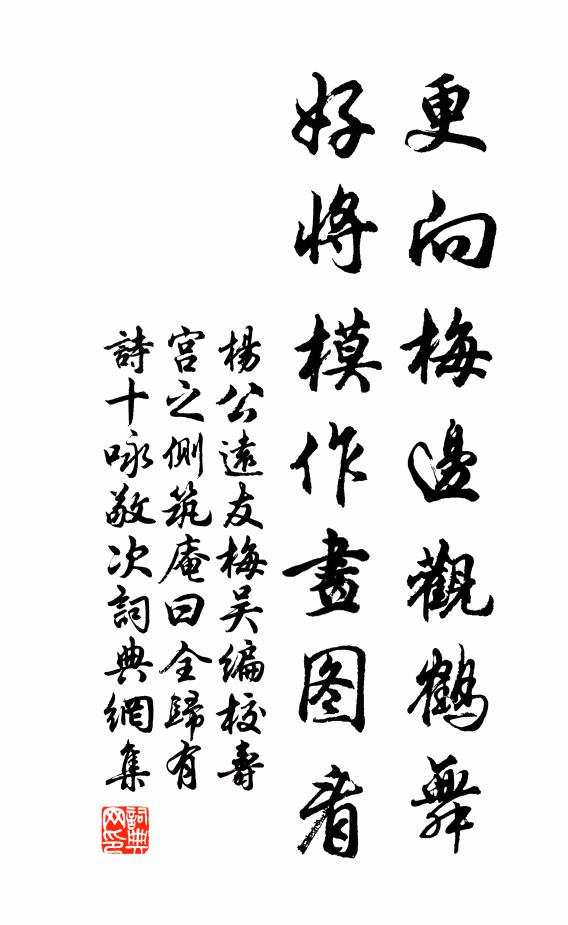 更向梅邊觀鶴舞
好將模作畫图看
楊公遠友梅吴編校壽
宫之側筑庵曰全歸有
詩十咏敬次詞典網集
詞典网印